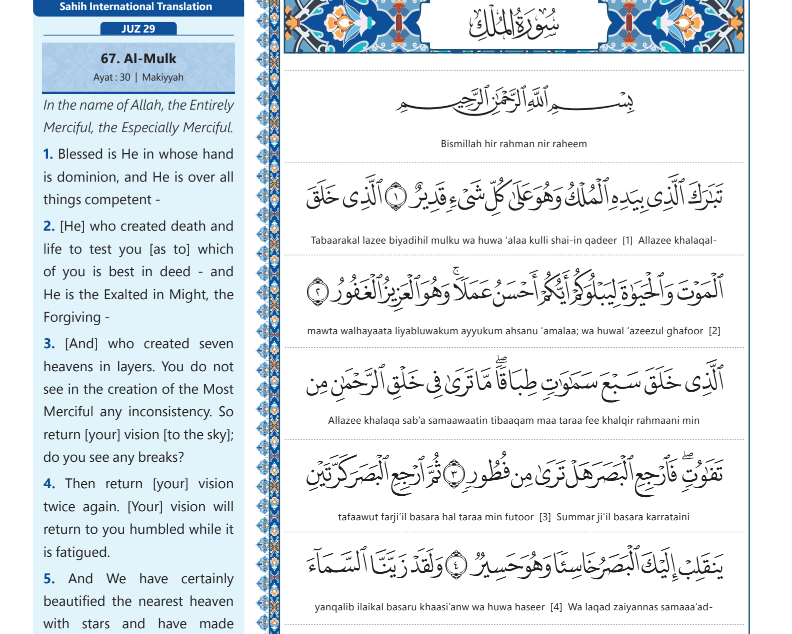 Sahih International Translation
JUZ 29
67. Al-Mulk
Ayat : 30 | Makiyyah
In the name of Allah, the Entirely
Merciful, the Especially Merciful.
1. Blessed is He in whose hand
is dominion, and He is over all
things competent -
2. [He] who created death and
life to test you [as to] which
of you is best in deed - and
He is the Exalted in Might, the
Forgiving -
3. [And] who created seven
heavens in layers. You do not
see in the creation of the Most
Merciful any inconsistency. So
return [your] vision [to the sky];
do you see any breaks?
4. Then return [your] vision
twice again. [Your] vision will
return to you humbled while it
is fatigued.
5. And We have certainly
beautified the nearest heaven
with stars and have made
سُورَةُ المُلْكِ
بِسْمِ اللَّهِ الرَّحْمَٰنِ الرَّحِيمِ
Bismillah hir rahman nir raheem
تَبَٰرَكَ ٱلَّذِى بِيَدِهِ ٱلْمُلْكُ وَهُوَ عَلَىٰ كُلِّ شَىْءٍ قَدِيرٌ ١ ٱلَّذِى خَلَقَ
Tabaarakal lazee biyadihil mulku wa huwa ‘alaa kulli shai-in qadeer [1] Allazee khalaqal-
ٱلْمَوْتَ وَٱلْحَيَوٰةَ لِيَبْلُوَكُمْ أَيُّكُمْ أَحْسَنُ عَمَلًا ۚ وَهُوَ ٱلْعَزِيزُ ٱلْغَفُورُ ٢
mawta walhayaata liyabluwakum ayyukum ahsanu ‘amalaa; wa huwal ‘azeezul ghafoor [2]
ٱلَّذِى خَلَقَ سَبْعَ سَمَٰوَٰتٍ طِبَاقًا ۖ مَّا تَرَىٰ فِى خَلْقِ ٱلرَّحْمَٰنِ مِن
Allazee khalaqa sab’a samaawaatin tibaaqam maa taraa fee khalqir rahmaani min
تَفَٰوُتٍ ۖ فَٱرْجِعِ ٱلْبَصَرَ هَلْ تَرَىٰ مِن فُطُورٍ ٣ ثُمَّ ٱرْجِعِ ٱلْبَصَرَ كَرَّتَيْنِ
tafaawut farji’il basara hal taraa min futoor [3] Summar ji’il basara karrataini
يَنقَلِبْ إِلَيْكَ ٱلْبَصَرُ خَاسِئًا وَهُوَ حَسِيرٌ ٤ وَلَقَدْ زَيَّنَّا ٱلسَّمَآءَ
yanqalib ilaikal basaru khaasi’anw wa huwa haseer [4] Wa laqad zaiyannas samaaa’ad-